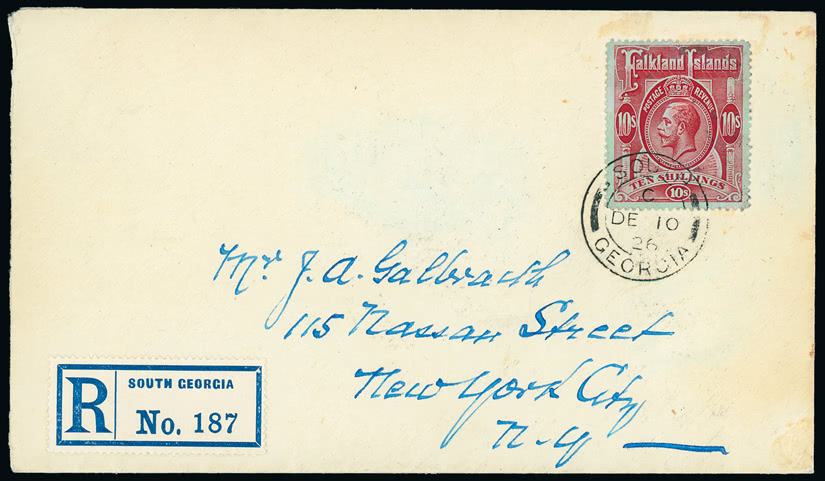 Falkland Islands
POSTAGE REVENUE
10s 10s
TEN SHILLINGS
10s
SOU
C
DE 10
26
GEORGIA
Mr J. A. Galbraith
115 Nassau Street
New York City
N.Y
R
SOUTH GEORGIA
No. 187